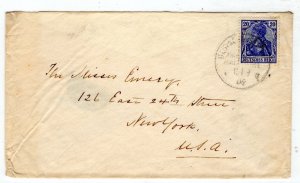 20 20
DEUTSCHES REICH
The Misses Emery,
126 East 24th Street
New York.
U.S.A.